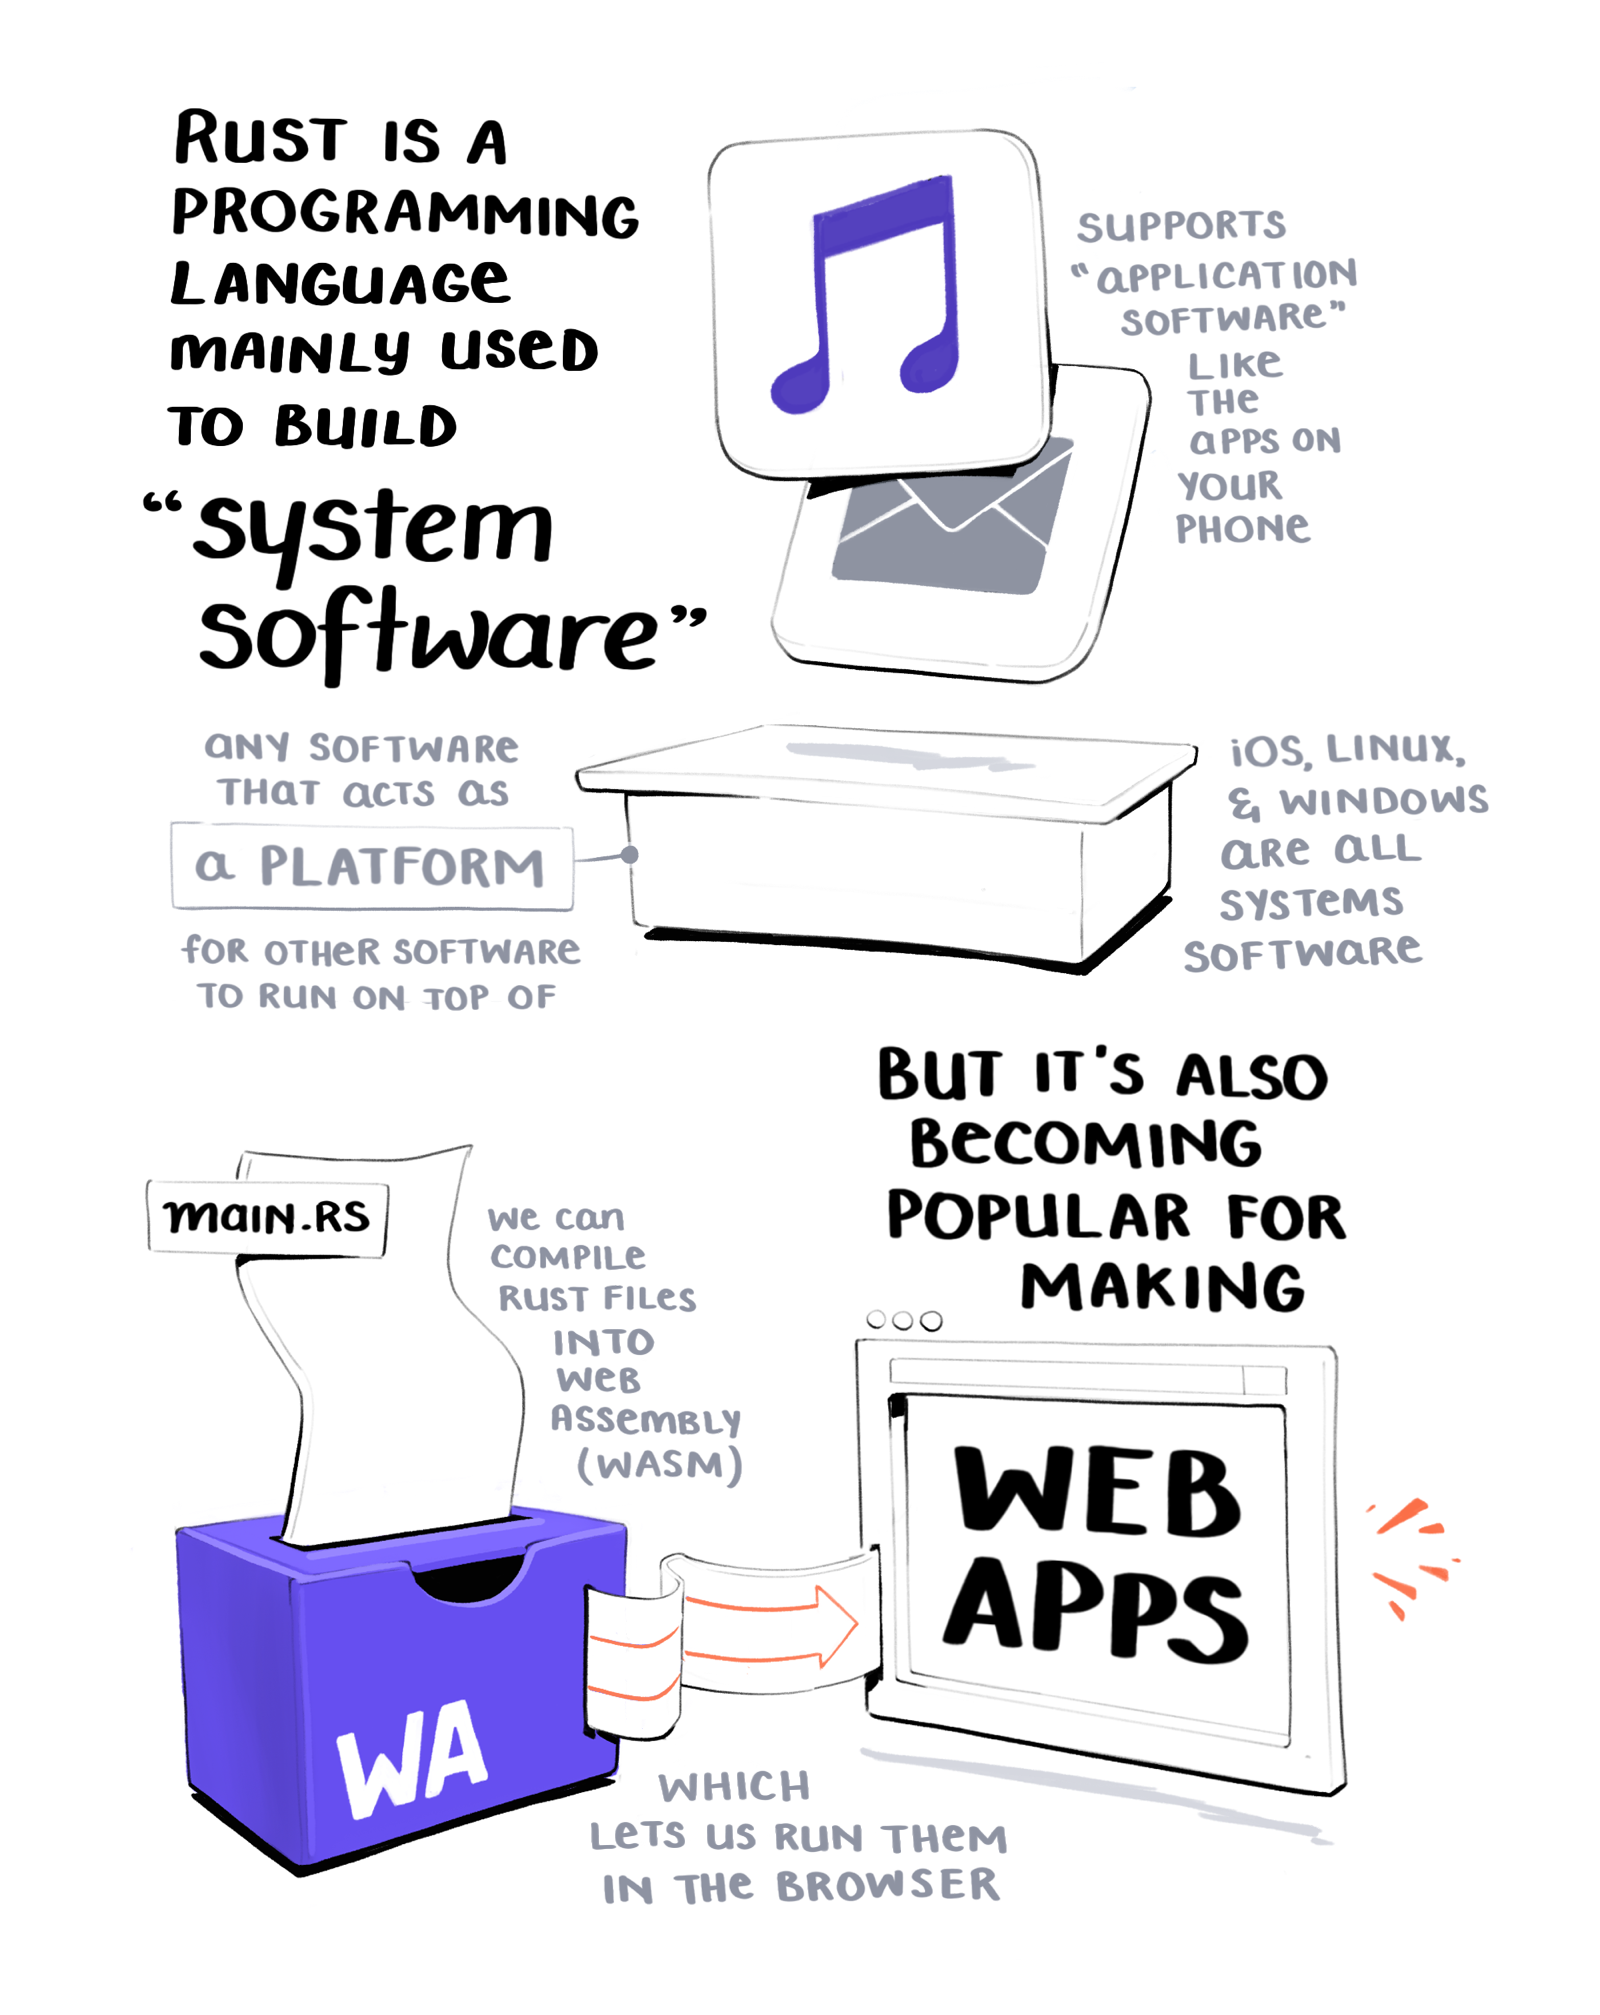 RUST IS A
PROGRAMMING
LANGUAGE
MAINLY USED
TO BUILD
“system
software”
SUPPORTS
“APPLICATION
SOFTWARE”
LIKE
THE
APPS ON
YOUR
PHONE
ANY SOFTWARE
THAT ACTS AS
a PLATFORM
FOR OTHER SOFTWARE
TO RUN ON TOP OF
iOS, LINUX,
& WINDOWS
ARE ALL
SYSTEMS
SOFTWARE
BUT IT'S ALSO
BECOMING
POPULAR FOR
MAKING
WEB
APPS
main.RS
WE CAN
COMPILE
RUST FILES
INTO
WEB
ASSEMBLY
(WASM)
WA
WHICH
LETS US RUN THEM
IN THE BROWSER